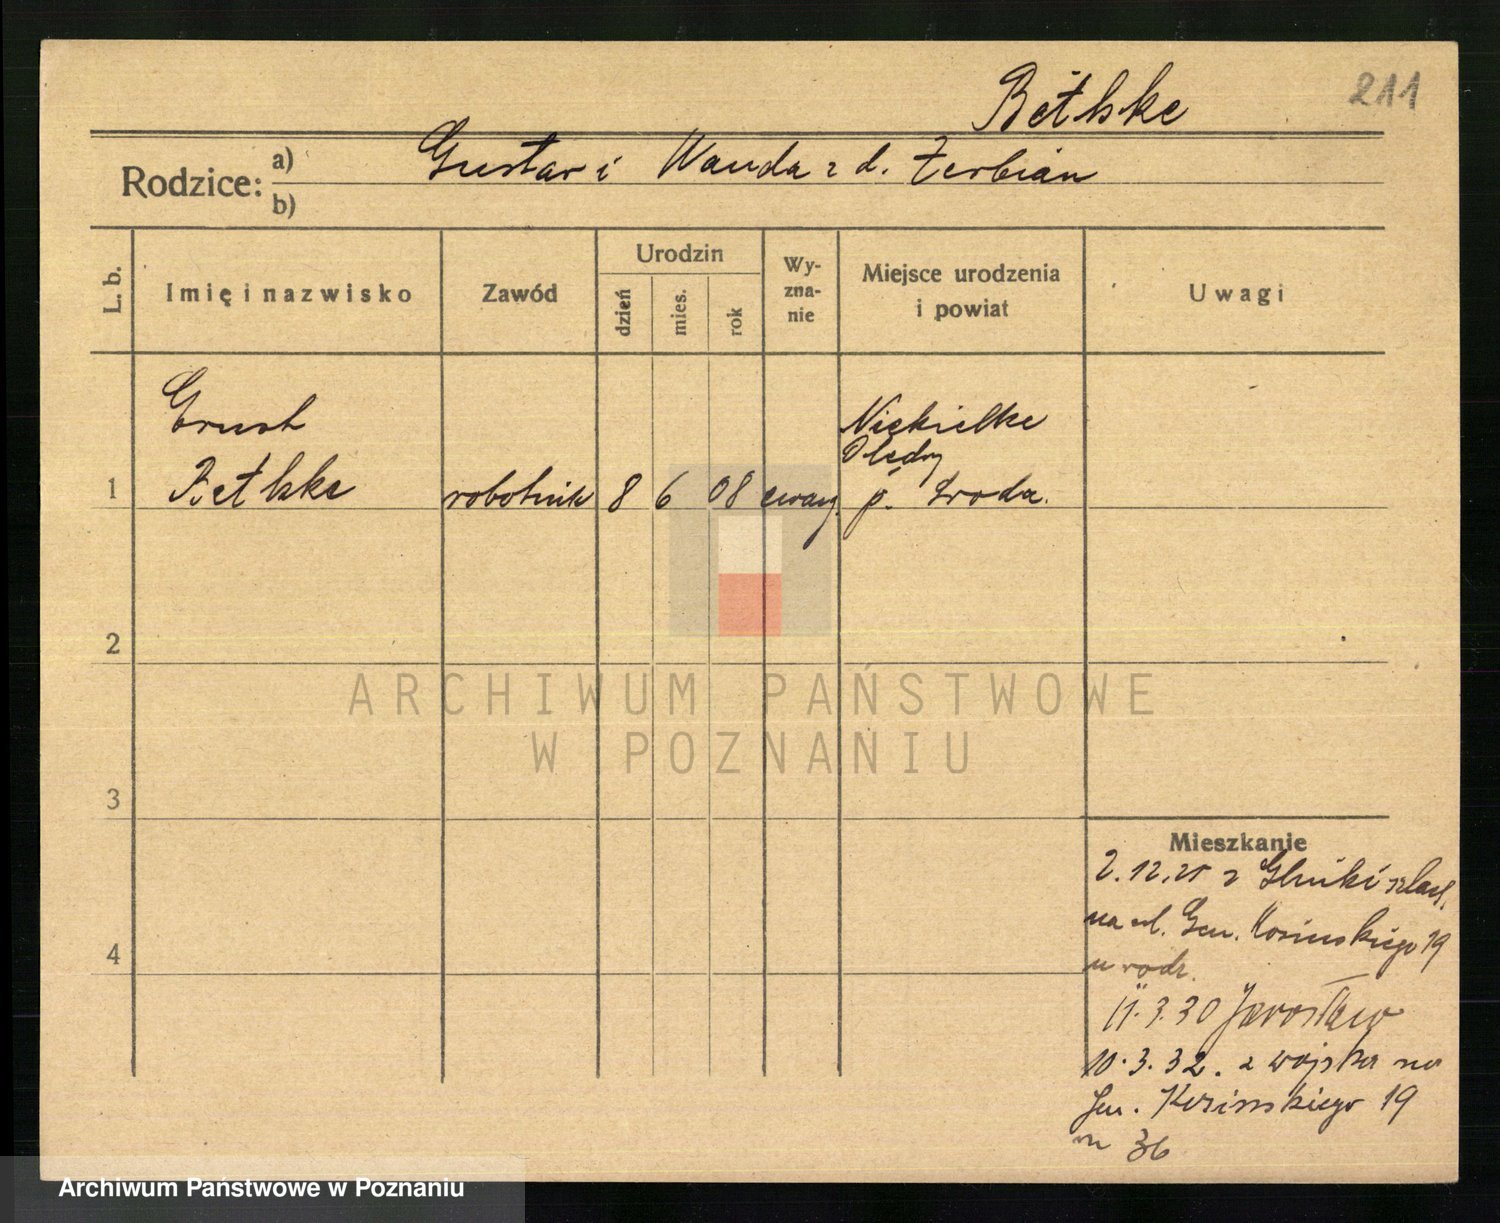 Bethke
211
Rodzice:
a)
Gustav i Wanda z d. Zerbian
b)
L. b.
Imię i nazwisko
Zawód
Urodzin
dzień
mies.
rok
Wy-
zna-
nie
Miejsce urodzenia
i powiat
Uwagi
Ernst
Niekielke
Olędry
1
Bethke
robotnik
8
6
08
ewang.
p. Środa.
2
3
4
ARCHIWUM PAŃSTWOWE
W POZNANIU
Mieszkanie
2.12.25 z szlach.
na ul. Gen. Kosinskiego 19
u rodz.
11.3.30 Jarosław
10.3.32. z wojska na
Gen. Kosinskiego 19
m 36
Archiwum Państwowe w Poznaniu